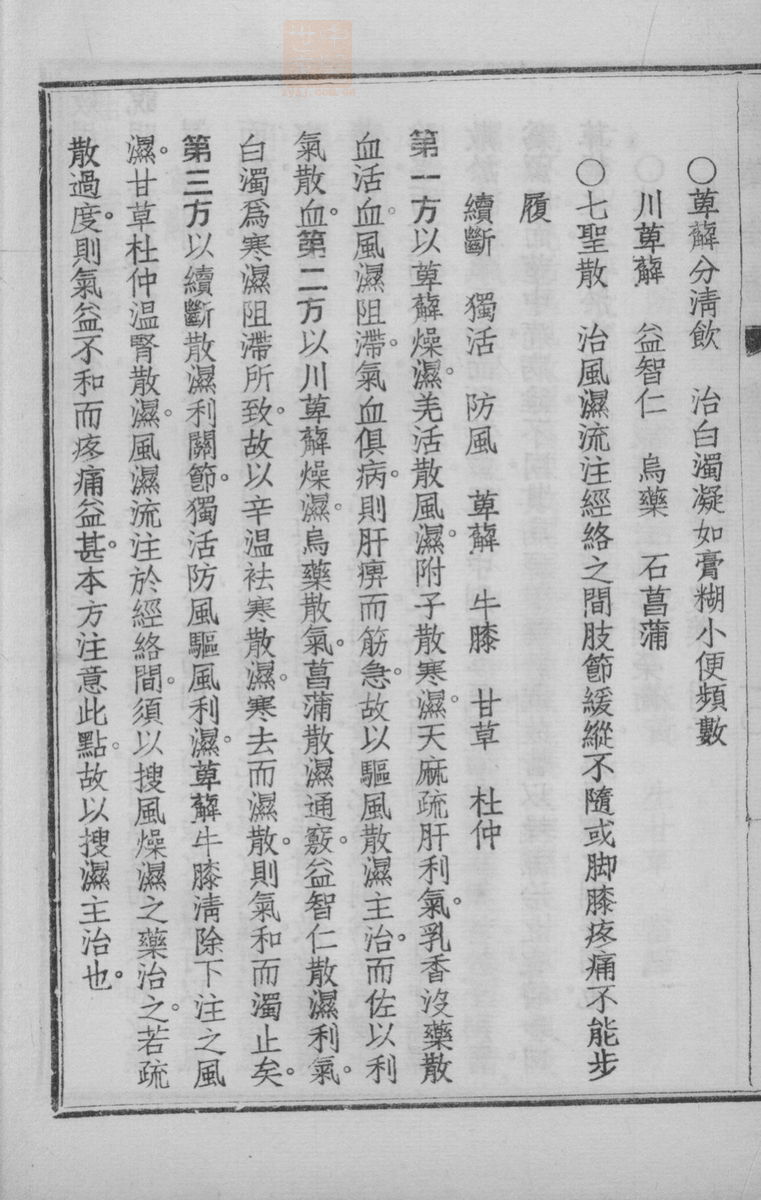 ○萆薢分淸飮　治白濁凝如膏糊小便頻數
川萆薢　益智仁　烏藥　石菖蒲
○七聖散　治風濕流注經絡之間肢節緩縱不隨或脚膝疼痛不能步
履
續斷　獨活　防風　萆薢　牛膝　甘草　杜仲
第一方以萆薢燥濕。羌活散風濕。附子散寒濕。天麻疏肝利氣。乳香沒藥散
血活血。風濕阻滯。氣血俱病。則肝痹而筋急。故以驅風散濕主治。而佐以利
氣散血。第二方以川萆薢燥濕。烏藥散氣。菖蒲散濕通竅。益智仁散濕利氣。
白濁爲寒濕阻滯所致。故以辛温祛寒散濕。寒去而濕散。則氣和而濁止矣。
第三方以續斷散濕利關節。獨活防風驅風利濕。萆薢牛膝淸除下注之風
濕。甘草杜仲温腎散濕。風濕流注於經絡間。須以搜風燥濕之藥治之。若疏
散過度。則氣益不和而疼痛益甚。本方注意此點。故以搜濕主治也。